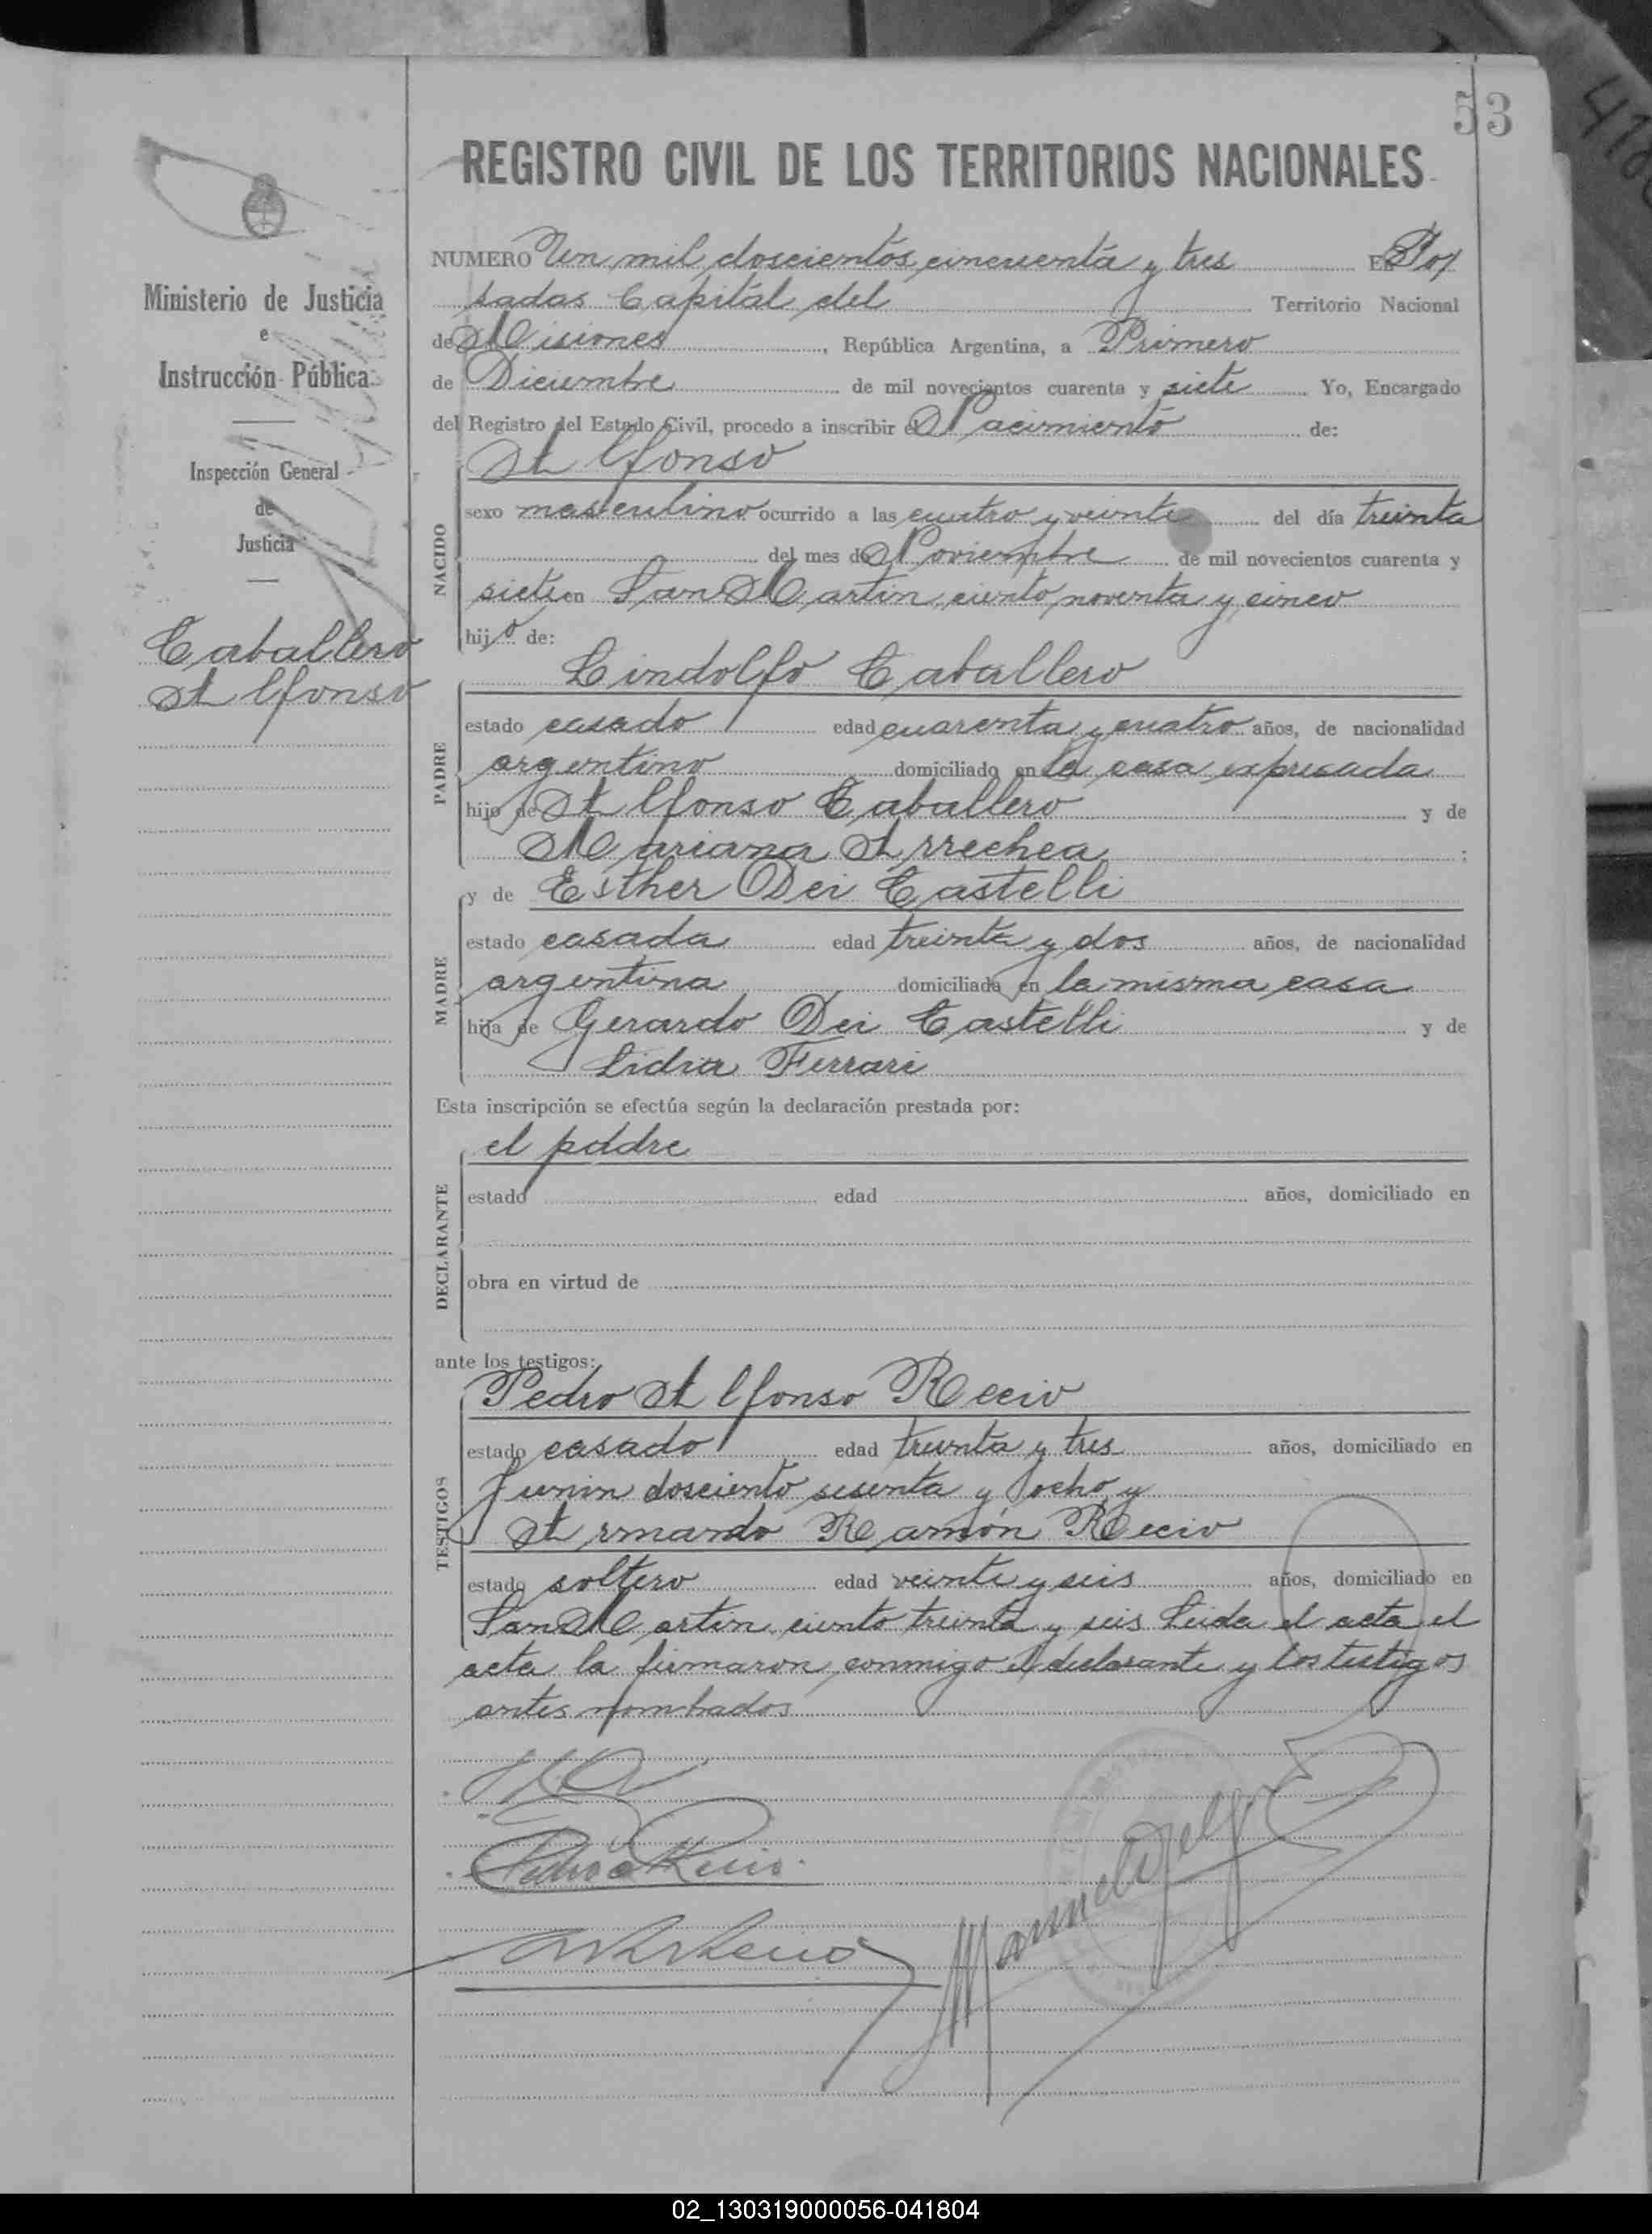 53
REGISTRO CIVIL DE LOS TERRITORIOS NACIONALES
Ministerio de Justicia
e
Instrucción Pública
Inspección General
de
Justicia
Caballero
Alfonso
NUMERO Un mil doscientos cincuenta y tres EN Po/
sadas Capital del Territorio Nacional
de Misiones, República Argentina, a Primero
de Diciembre de mil novecientos cuarenta y siete Yo, Encargado
del Registro del Estado Civil, procedo a inscribir el Nacimiento de:
Alfonso
NACIDO
sexo masculino ocurrido a las cuatro y veinte del día treinta
del mes de Noviembre de mil novecientos cuarenta y
siete en San Martin ciento noventa y cinco
hijo de:
Lindolfo Caballero
PADRE
estado casado edad cuarenta y cuatro años, de nacionalidad
argentino domiciliado en la casa expresada
hijo de Alfonso Caballero y de
Mariana Arrechea ;
MADRE
y de Esther Dei Castelli
estado casada edad treinta y dos años, de nacionalidad
argentina domiciliada en la misma casa
hija de Gerardo Dei Castelli y de
Lidia Ferrari
Esta inscripción se efectúa según la declaración prestada por:
el padre
DECLARANTE
estado edad años, domiciliado en
obra en virtud de
ante los testigos:
Pedro Alfonso Recio
TESTIGOS
estado casado edad treinta y tres años, domiciliado en
Junin dosciento sesenta y ocho y
Armando Ramón Recio
estado soltero edad veinte y seis años, domiciliado en
San Martin ciento treinta y seis Leida el acta el
acta la firmaron conmigo el declarante y los testigos
antes nombados
02_130319000056-041804